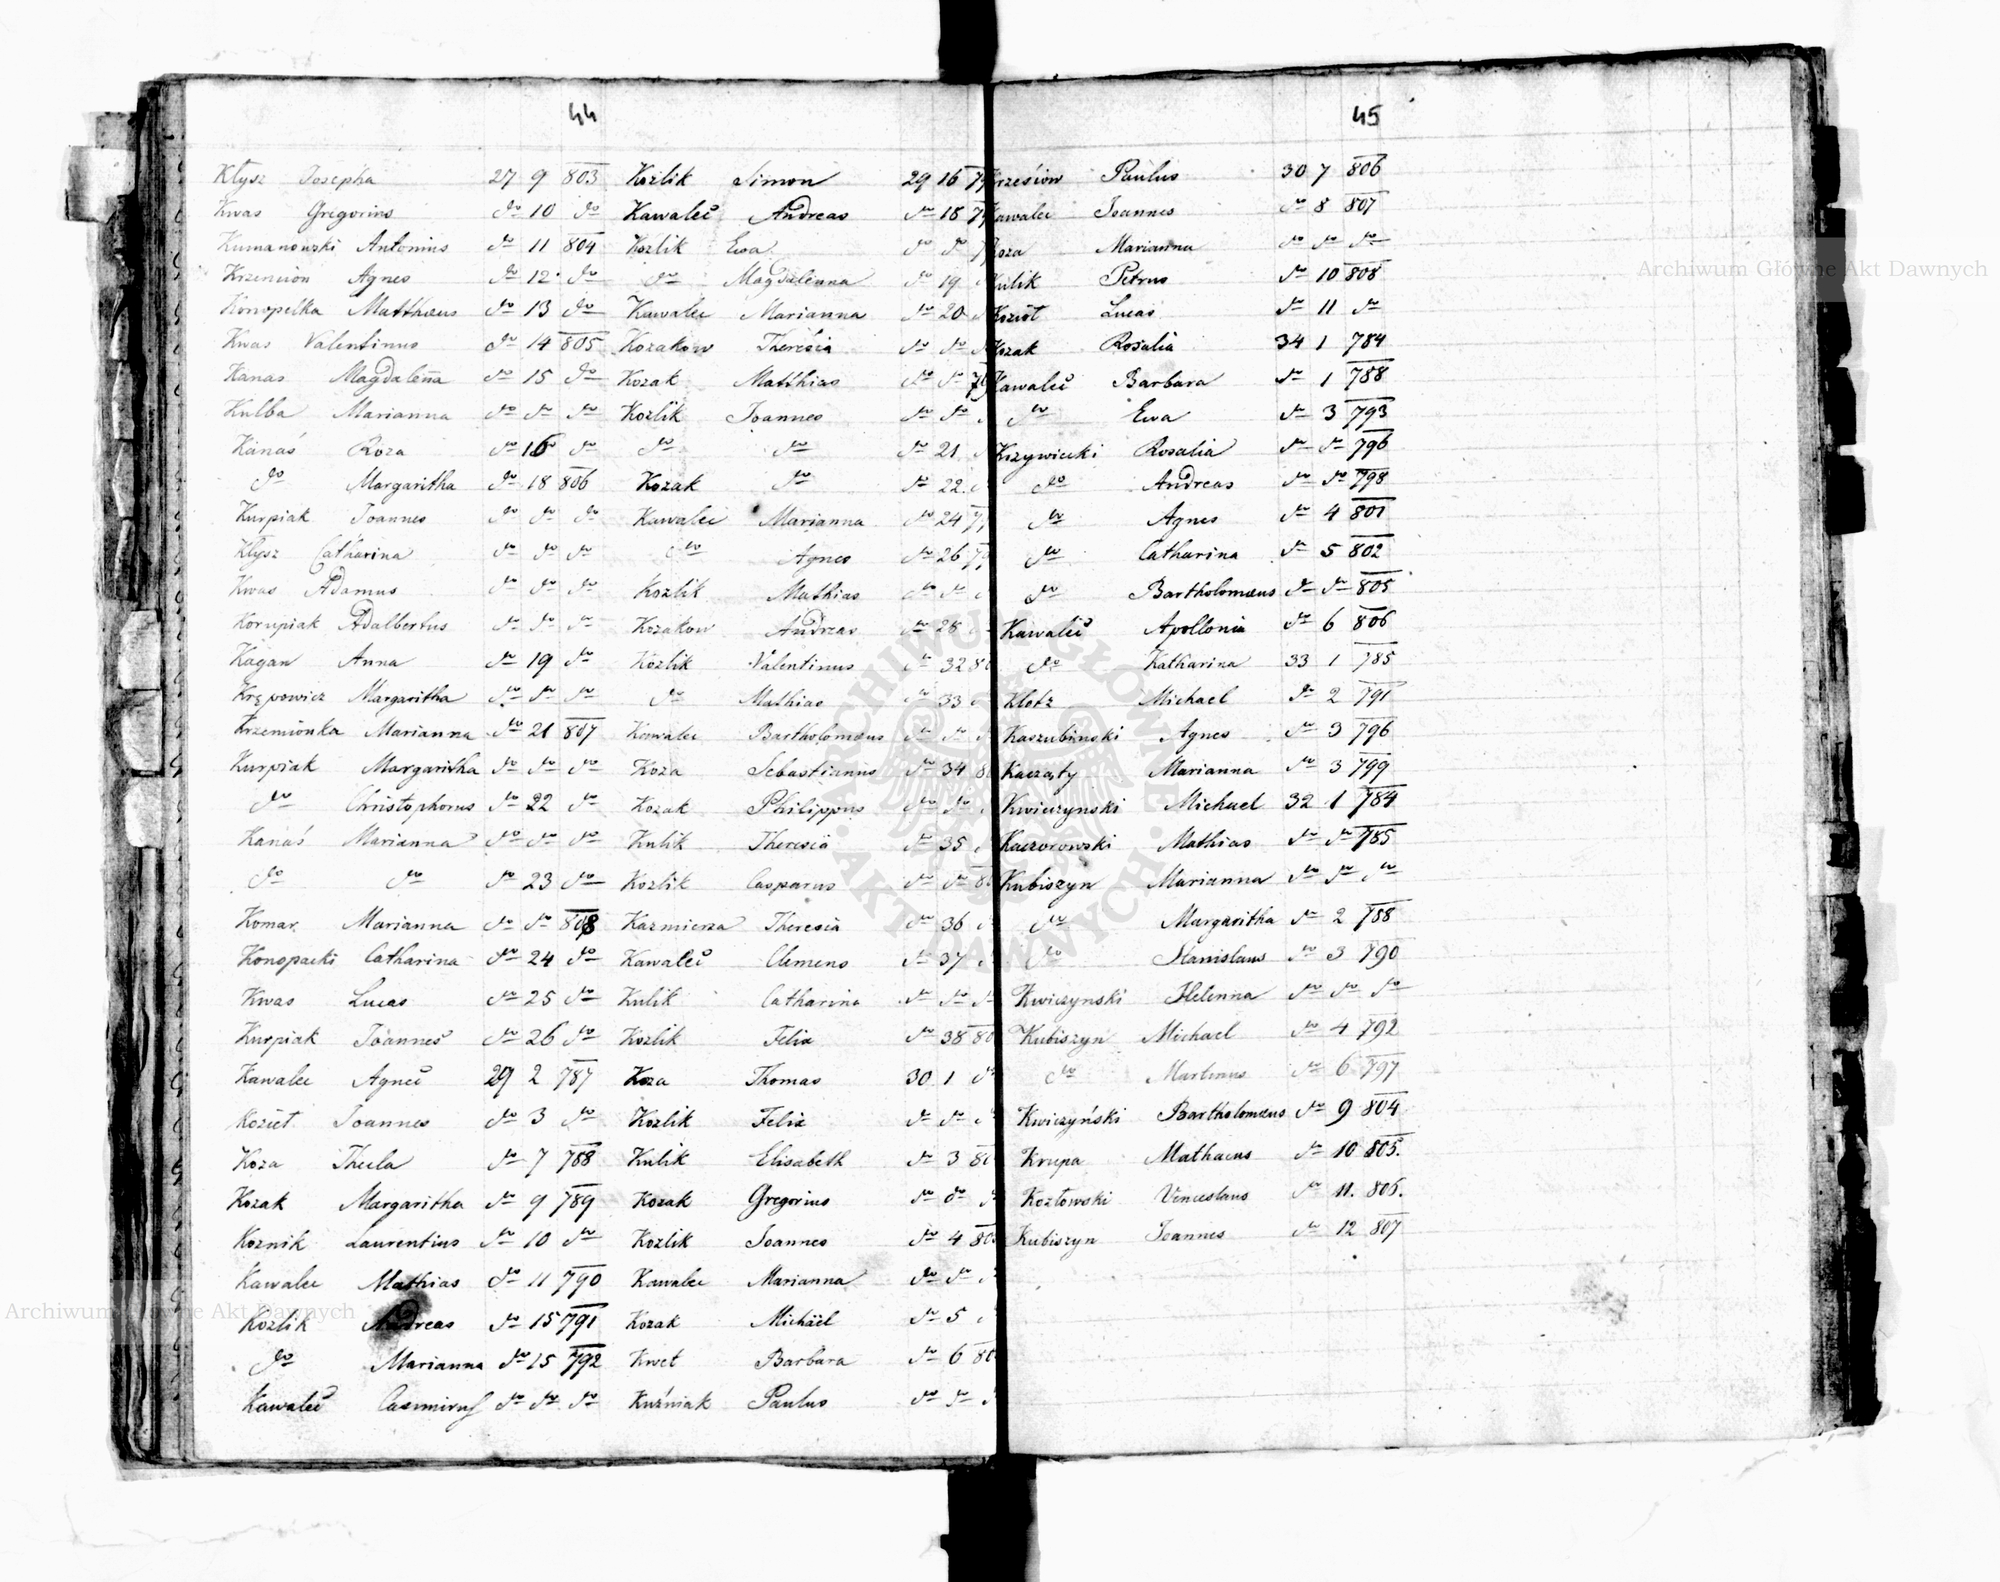 44
Kłysz Josepha 27 9 803
Kwas Gregorius do 10 do
Kumanowski Antonius do 11 804
Krzemion Agnes do 12 do
Konopelka Mathaeus do 13 do
Kwas Valentinus do 14 805
Kanas Magdalena do 15 do
Kulba Marianna do do do
Kanaś Roza do 16 do
do Margaritha do 18 806
Kurpiak Joannes do do do
Kłysz Catharina do do do
Kwas Adamus do do do
Korupiak Adalbertus do do do
Kagan Anna do 19 do
Krępowicz Margaritha do do do
Krzemionka Marianna do 21 807
Kurpiak Margaritha do do do
do Christophorus do 22 do
Kanaś Marianna do do do
do do do 23 do
Komar Marianna do do 808
Konopacki Catharina do 24 do
Kwas Lucas do 25 do
Kurpiak Joannes do 26 do
Kawalec Agnes 29 2 787
Kozieł Joannes do 3 do
Koza Thecla do 7 788
Kozak Margaritha do 9 789
Koznik Laurentius do 10 do
Kawalec Mathias do 11 790
Kozlik Andreas do 15 791
do Marianna do 15 792
Kawalec Casimirus do do do
Kozlik Simon 29 16
Kawalec Andreas do 18
Kozlik Ewa do do
do Magdalenna do 19
Kawalec Marianna do 20
Kozakow Theresia do do
Kozak Matthias do do
Kozlik Joannes do do
do do do 21
Kozak do do 22
Kawalec Marianna do 24
do Agnes do 26
Kozlik Mathias do do
Kozakow Andreas do 28
Kozlik Valentinus do 32
do Mathias do 33
Kawalec Bartholomaeus do do
Koza Sebastianus do 34
Kozak Philippus do do
Kulik Theresia do 35
Kozlik Casparus do do
Kazmierza Theresia do 36
Kawalec Clemens do 37
Kulik Catharina do do
Kozlik Felix do 38
Koza Thomas 30 1
Kozlik Felix do do
Kulik Elisabeth do 3
Kozak Gregorius do do
Kozlik Joannes do 4
Kawalec Marianna do do
Kozak Michael do 5
Kwet Barbara do 6
Kuźniak Paulus do do
45
Krzesiow Paulus 30 7 806
Kawalec Joannes do 8 807
Koza Marianna do do do
Kulik Petrus do 10 808
Kozioł Lucas do 11 do
Kozak Rosalia 34 1 784
Kawalec Barbara do 1 788
do Ewa do 3 793
Krzywicki Rosalia do do 796
do Andreas do do 798
do Agnes do 4 801
do Catharina do 5 802
do Bartholomaeus do do 805
Kawalec Apollonia do 6 806
do Katharina 33 1 785
Klotz Michael do 2 791
Kaszubinski Agnes do 3 796
Kaczaty Marianna do 3 799
Kwiczynski Michael 32 1 784
Kaczorowski Mathias do do 785
Kubiszyn Marianna do do do
do Margaritha do 2 788
do Stanislaus do 3 790
Kwiczynski Helenna do do do
Kubiszyn Michael do 4 792
do Martinus do 6 797
Kwiczyński Bartholomaeus do 9 804
Krupa Mathaeus do 10 805.
Kozłowski Venceslaus do 11. 806.
Kubiszyn Joannes do 12 807
Archiwum Główne Akt Dawnych
Archiwum Główne Akt Dawnych
ARCHIWUM GŁÓWNE AKT DAWNYCH